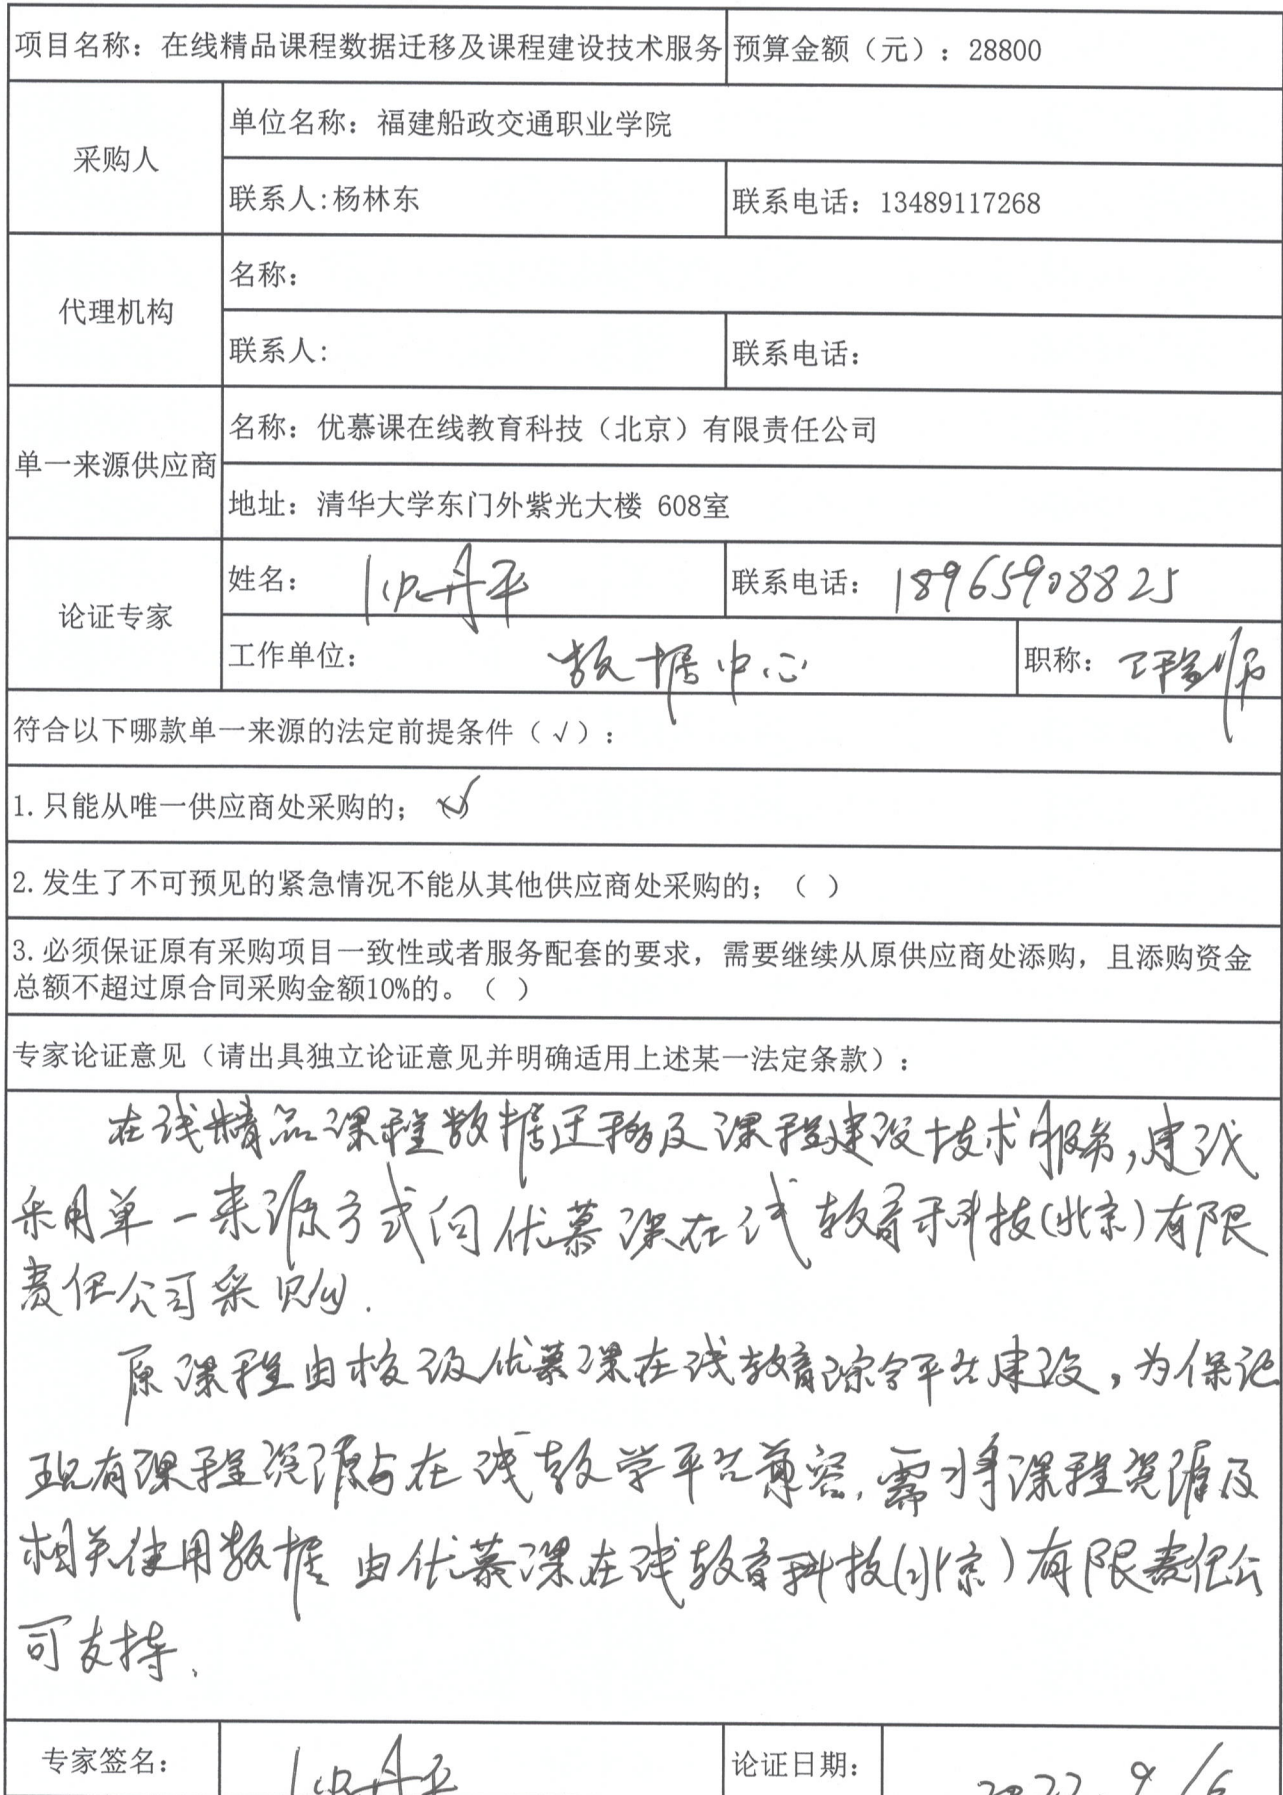 项目名称：在线精品课程数据迁移及课程建设技术服务 预算金额（元）：28800
采购人
单位名称：福建船政交通职业学院
联系人:杨林东 联系电话：13489117268
代理机构
名称：
联系人: 联系电话：
单一来源供应商
名称：优慕课在线教育科技（北京）有限责任公司
地址：清华大学东门外紫光大楼 608室
论证专家
姓名： 丹平 联系电话：18965908825
工作单位： 数据中心 职称：工程师
符合以下哪款单一来源的法定前提条件（√）：
1.只能从唯一供应商处采购的；（√）
2.发生了不可预见的紧急情况不能从其他供应商处采购的；（ ）
3.必须保证原有采购项目一致性或者服务配套的要求，需要继续从原供应商处添购，且添购资金
总额不超过原合同采购金额10%的。（ ）
专家论证意见（请出具独立论证意见并明确适用上述某一法定条款）：
在线精品课程数据迁移及课程建设技术服务，建议
采用单一来源方式向优慕课在线教育科技(北京)有限
责任公司采购.
原课程由校级优慕课在线教育综合平台建设，为保证
现有课程资源与在线教学平台兼容，需将课程资源及
相关使用数据由优慕课在线教育科技(北京)有限责任公
司支持.
专家签名： 丹平 论证日期：2022.9/6